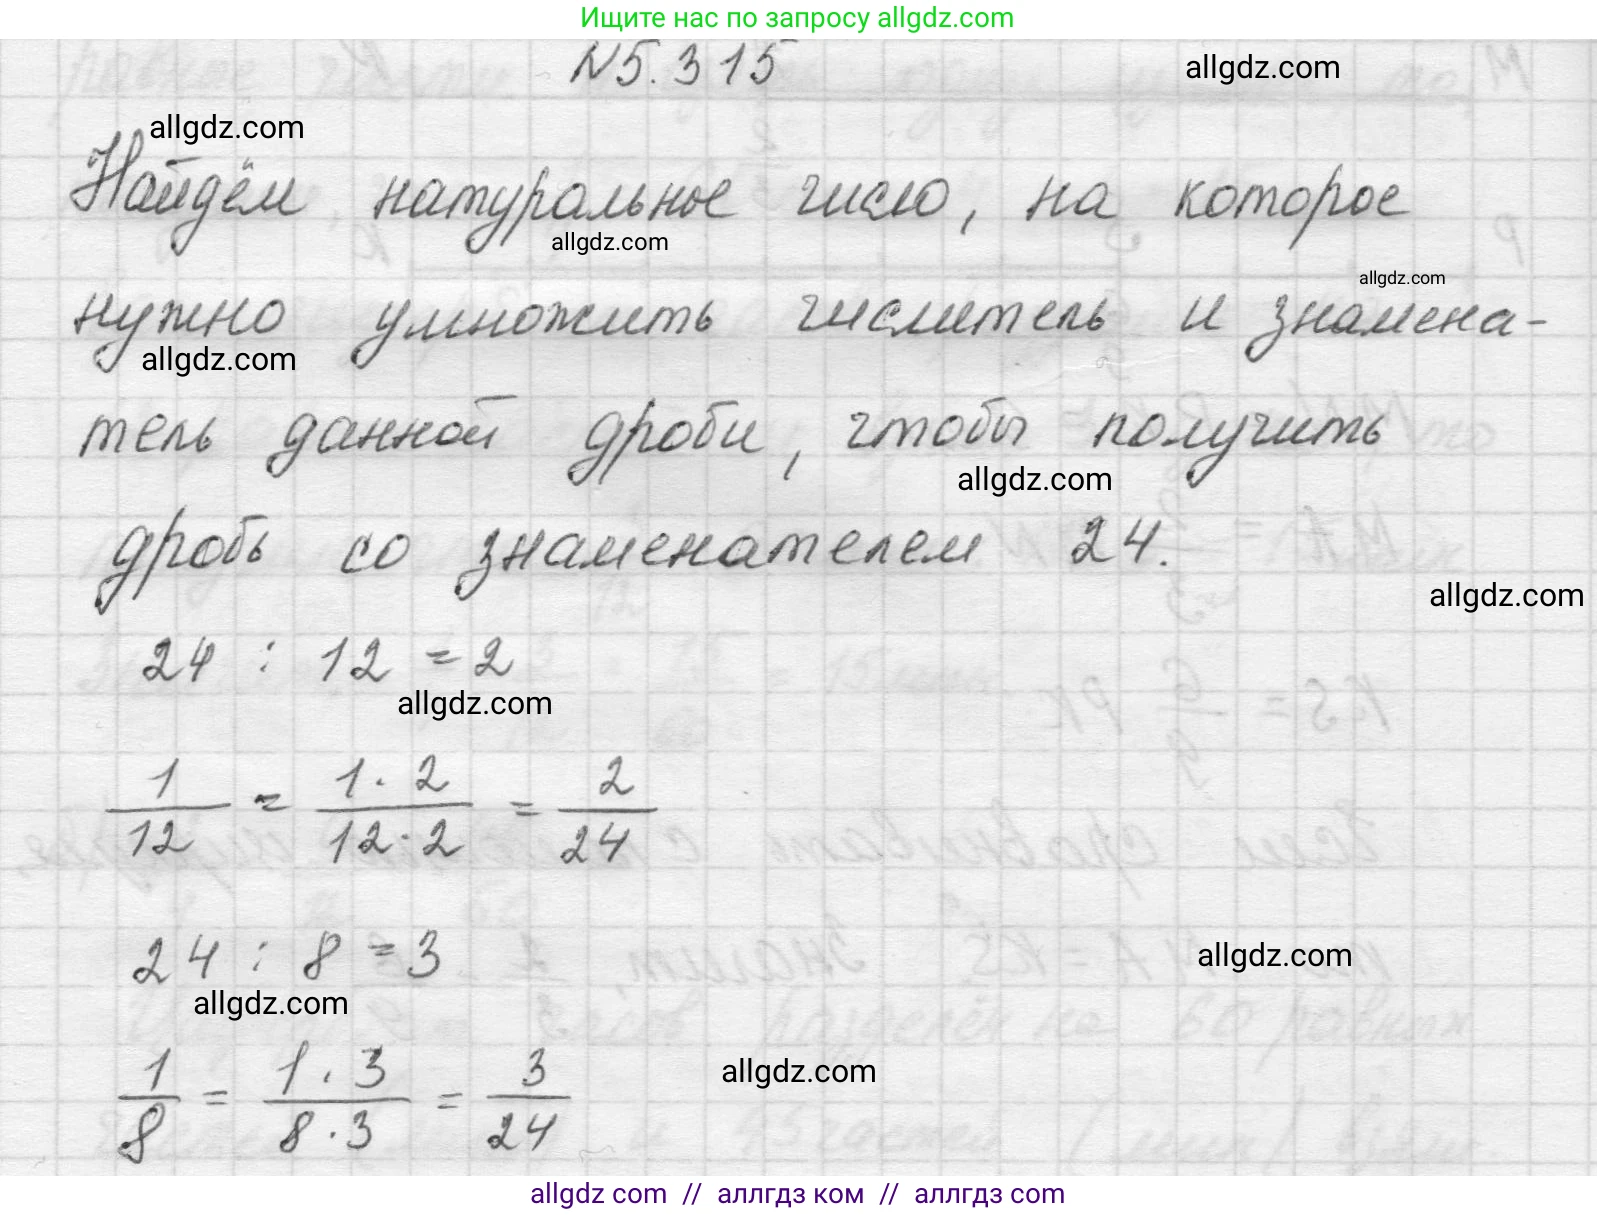 Ищите нас по запросу allgdz.com
N5.315
allgdz.com
allgdz.com
Найдём натуральное число, на которое
allgdz.com
allgdz.com
нужно умножить числитель и знамена-
allgdz.com
тель данной дроби, чтобы получить
allgdz.com
дробь со знаменателем 24.
allgdz.com
24 : 12 = 2
allgdz.com
1/12 = 1·2/12·2 = 2/24
24 : 8 = 3
allgdz.com
allgdz.com
1/8 = 1·3/8·3 = 3/24
allgdz.com
allgdz com // аллгдз ком // аллгдз com